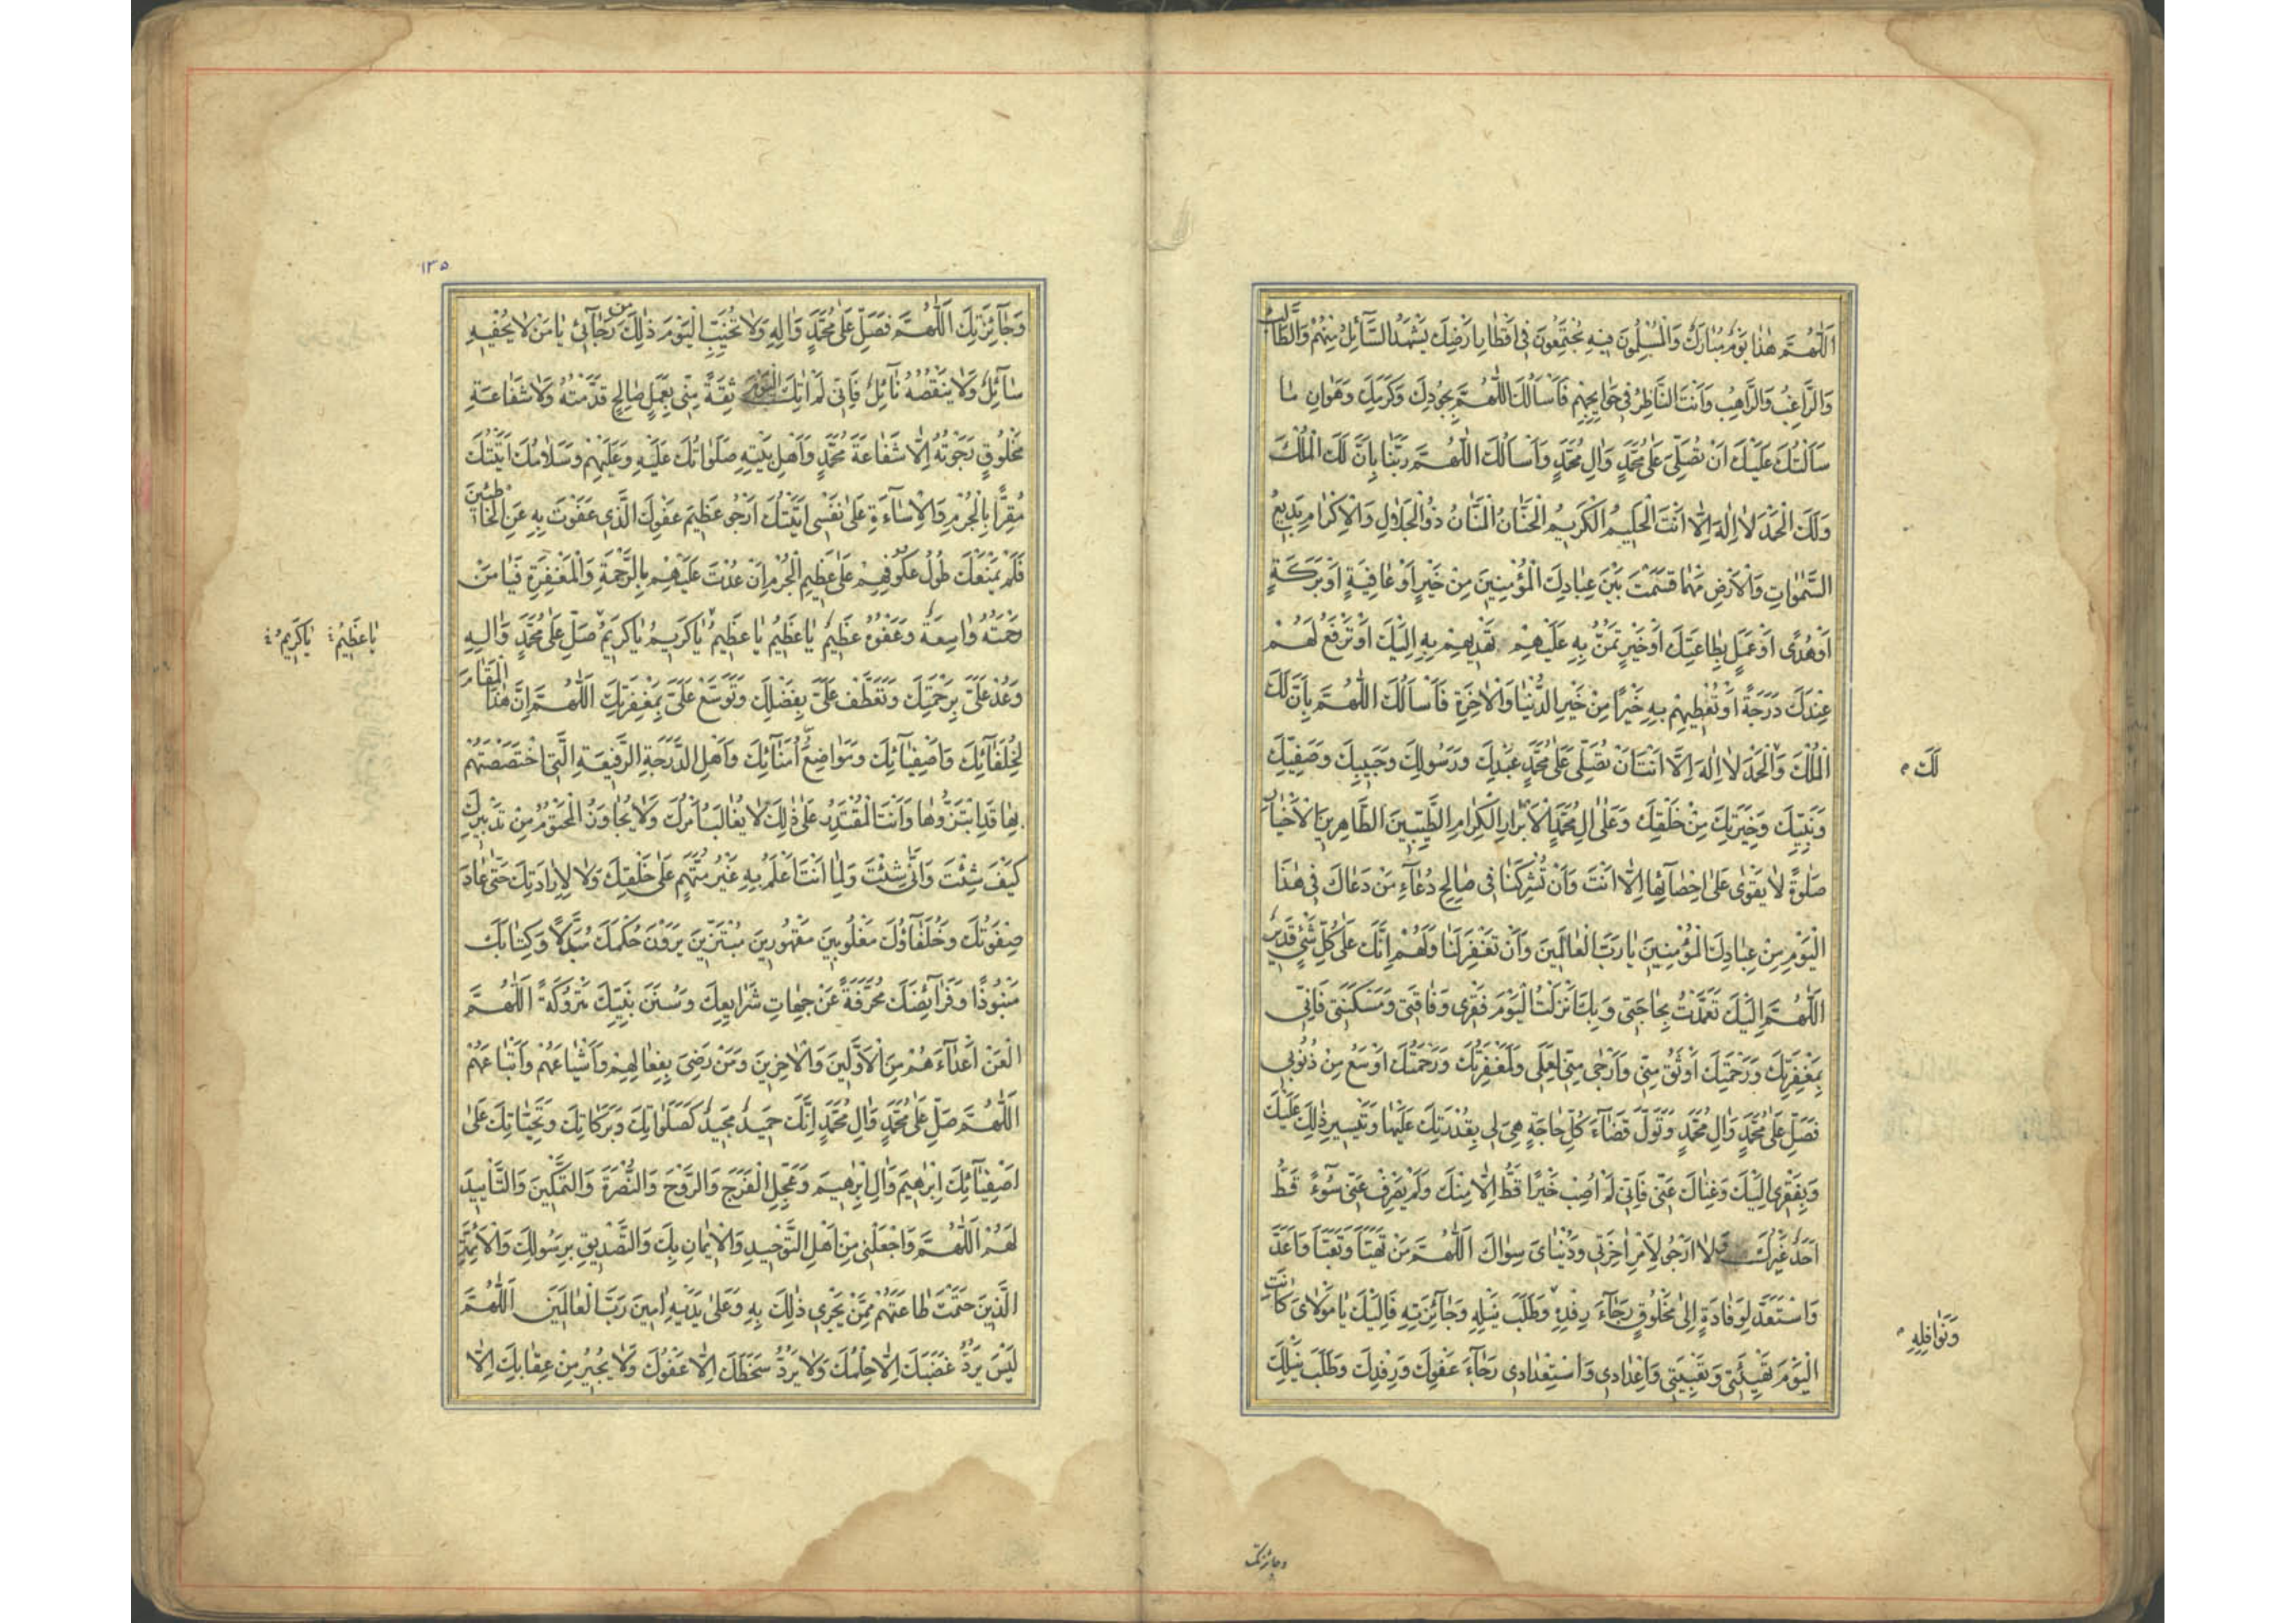 اَللّٰهُمَّ هٰذا يَوْمٌ مُبارَكٌ وَالْمُسْلِمُونَ فيهِ مُجْتَمِعُونَ فى اَقْطارِ اَرْضِكَ يَشْهَدُ السَّآئِلُ مِنْهُمْ وَالطّالِبُ
وَالرّاغِبُ وَالرّاهِبُ وَاَنْتَ النّاظِرُ فى حَوايِجِهِمْ فَاَسْاَلُكَ اللّٰهُمَّ بِجُودِكَ وَكَرَمِكَ وَهَوانِ ما
سَاَلْتُكَ عَلَيْكَ اَنْ تُصَلِّىَ عَلٰى مُحَمَّدٍ وَالِ مُحَمَّدٍ وَاَسْاَلُكَ اللّٰهُمَّ رَبَّنا بِاَنَّ لَكَ الْمُلْكَ
وَلَكَ الْحَمْدَ لا اِلٰهَ اِلّا اَنْتَ الْحَليمُ الْكَريمُ الْحَنّانُ الْمَنّانُ ذُو الْجَلالِ وَالْاِكْرامِ بَديعُ
السَّمٰواتِ وَالْاَرْضِ مَهْما قَسَمْتَ بَيْنَ عِبادِكَ الْمُؤْمِنينَ مِنْ خَيْرٍ اَوْ عافِيَةٍ اَوْ بَرَكَةٍ
اَوْ هُدًى اَوْ عَمَلٍ بِطاعَتِكَ اَوْ خَيْرٍ تَمُنُّ بِهِ عَلَيْهِمْ تَهْديهِمْ بِهِ اِلَيْكَ اَوْ تَرْفَعُ لَهُمْ
عِنْدَكَ دَرَجَةً اَوْ تُعْطيهِمْ بِهِ خَيْرًا مِنْ خَيْرِ الدُّنْيا وَالْاٰخِرَةِ فَاَسْاَلُكَ اللّٰهُمَّ بِاَنَّ لَكَ
الْمُلْكَ وَالْحَمْدَ لا اِلٰهَ اِلّا اَنْتَ اَنْ تُصَلِّىَ عَلٰى مُحَمَّدٍ عَبْدِكَ وَرَسُولِكَ وَحَبيبِكَ وَصَفِيِّكَ
لَكَ
وَنَبِيِّكَ وَخِيَرَتِكَ مِنْ خَلْقِكَ وَعَلٰى الِ مُحَمَّدٍ الْاَبْرارِ الْكِرامِ الطَّيِّبينَ الطّاهِرينَ الْاَخْيارِ
صَلوةً لا يَقْوٰى عَلٰى اِحْصآئِها اِلّا اَنْتَ وَاَنْ تُشْرِكَنا فى صالِحِ دُعآءِ مَنْ دَعاكَ فى هٰذَا
الْيَوْمِ مِنْ عِبادِكَ الْمُؤْمِنينَ يا رَبَّ الْعالَمينَ وَاَنْ تَغْفِرَ لَنا وَلَهُمْ اِنَّكَ عَلٰى كُلِّ شَىْءٍ قَديرٌ
اَللّٰهُمَّ اِلَيْكَ تَعَمَّدْتُ بِحاجَتى وَبِكَ اَنْزَلْتُ الْيَوْمَ فَقْرى وَفاقَتى وَمَسْكَنَتى فَاِنّى
بِمَغْفِرَتِكَ وَرَحْمَتِكَ اَوْثَقُ مِنّى وَاَرْجٰى مِنّى لِعَمَلى وَلَمَغْفِرَتُكَ وَرَحْمَتُكَ اَوْسَعُ مِنْ ذُنُوبى
فَصَلِّ عَلٰى مُحَمَّدٍ وَالِ مُحَمَّدٍ وَتَوَلَّ قَضآءَ كُلِّ حاجَةٍ هِىَ لى بِقُدْرَتِكَ عَلَيْها وَتَيْسيرِ ذٰلِكَ عَلَيْكَ
وَبِفَقْرى اِلَيْكَ وَغِناكَ عَنّى فَاِنّى لَمْ اُصِبْ خَيْرًا قَطُّ اِلّا مِنْكَ وَلَمْ يَصْرِفْ عَنّى سُوٓءً قَطُّ
اَحَدٌ غَيْرُكَ وَلا اَرْجُو لِاَمْرِ اٰخِرَتى وَدُنْياىَ سِواكَ اَللّٰهُمَّ مَنْ تَهَيَّاَ وَتَعَبَّاَ وَاَعَدَّ
وَاسْتَعَدَّ لِوِفادَةٍ اِلٰى مَخْلُوقٍ رَجآءَ رِفْدِهِ وَطَلَبَ نَيْلِهِ وَجآئِزَتِهِ فَاِلَيْكَ يا مَوْلاىَ كانَتِ
وَنَوافِلِهِ
الْيَوْمَ تَهْيِئَتى وَتَعْبِيَتى وَاِعْدادى وَاسْتِعْدادى رَجآءَ عَفْوِكَ وَرِفْدِكَ وَطَلَبَ نَيْلِكَ
وجائزتك
١٣٥
وَجآئِزَتِكَ اَللّٰهُمَّ فَصَلِّ عَلٰى مُحَمَّدٍ وَالِهِ وَلا تُخَيِّبِ الْيَوْمَ ذٰلِكَ مِنْ رَجآئى يا مَنْ لا يُحْفيهِ
سآئِلٌ وَلا يَنْقُصُهُ نآئِلٌ فَاِنّى لَمْ اٰتِكَ الْيَوْمَ ثِقَةً مِنّى بِعَمَلٍ صالِحٍ قَدَّمْتُهُ وَلا شَفاعَةِ
مَخْلُوقٍ رَجَوْتُهُ اِلّا شَفاعَةَ مُحَمَّدٍ وَاَهْلِ بَيْتِهِ صَلَواتُكَ عَلَيْهِ وَعَلَيْهِمْ وَسَلامُكَ اَتَيْتُكَ
مُقِرًّا بِالْجُرْمِ وَالْاِسآءَةِ عَلٰى نَفْسى اَتَيْتُكَ اَرْجُو عَظيمَ عَفْوِكَ الَّذى عَفَوْتَ بِهِ عَنِ الْخاطِئينَ
فَلَمْ يَمْنَعْكَ طُولُ عُكُوفِهِمْ عَلٰى عَظيمِ الْجُرْمِ اَنْ عُدْتَ عَلَيْهِمْ بِالرَّحْمَةِ وَالْمَغْفِرَةِ فَيا مَنْ
رَحْمَتُهُ واسِعَةٌ وَعَفْوُهُ عَظيمٌ يا عَظيمُ يا عَظيمُ يا كَريمُ يا كَريمُ صَلِّ عَلٰى مُحَمَّدٍ وَالِهِ
يا عَظيمُ يا كَريمُ
وَعُدْ عَلَىَّ بِرَحْمَتِكَ وَتَعَطَّفْ عَلَىَّ بِفَضْلِكَ وَتَوَسَّعْ عَلَىَّ بِمَغْفِرَتِكَ اَللّٰهُمَّ اِنَّ هٰذَا الْمَقامَ
لِخُلَفآئِكَ وَاَصْفِيآئِكَ وَمَواضِعَ اُمَنآئِكَ وَاَهْلِ الدَّرَجَةِ الرَّفيعَةِ الَّتى اخْتَصَصْتَهُمْ
بِها قَدِ ابْتَزُّوها وَاَنْتَ الْمُقَدِّرُ عَلٰى ذٰلِكَ لا يُغالَبُ اَمْرُكَ وَلا يُجاوَزُ الْمَحْتُومُ مِنْ تَدْبيرِكَ
كَيْفَ شِئْتَ وَاَنّٰى شِئْتَ وَلِما اَنْتَ اَعْلَمُ بِهِ غَيْرُ مُتَّهَمٍ عَلٰى خَلْقِكَ وَلا لِاِرادَتِكَ حَتّٰى عادَ
صِفْوَتُكَ وَخُلَفآؤُكَ مَغْلُوبينَ مَقْهُورينَ مُبْتَزّينَ يَرَوْنَ حُكْمَكَ مُبَدَّلًا وَكِتابَكَ
مَنْبُوذًا وَفَرآئِضَكَ مُحَرَّفَةً عَنْ جِهاتِ شَرايِعِكَ وَسُنَنَ نَبِيِّكَ مَتْرُوكَةً اَللّٰهُمَّ
الْعَنْ اَعْدآءَهُمْ مِنَ الْاَوَّلينَ وَالْاٰخِرينَ وَمَنْ رَضِىَ بِفِعالِهِمْ وَاَشْياعَهُمْ وَاَتْباعَهُمْ
اَللّٰهُمَّ صَلِّ عَلٰى مُحَمَّدٍ وَالِ مُحَمَّدٍ اِنَّكَ حَميدٌ مَجيدٌ كَصَلَواتِكَ وَبَرَكاتِكَ وَتَحِيّاتِكَ عَلٰى
اَصْفِيآئِكَ اِبْرٰهيمَ وَالِ اِبْرٰهيمَ وَعَجِّلِ الْفَرَجَ وَالرَّوْحَ وَالنُّصْرَةَ وَالتَّمْكينَ وَالتَّاْييدَ
لَهُمْ اَللّٰهُمَّ وَاجْعَلْنى مِنْ اَهْلِ التَّوْحيدِ وَالْايمانِ بِكَ وَالتَّصْديقِ بِرَسُولِكَ وَالْاَئِمَّةِ
الَّذينَ حَتَمْتَ طاعَتَهُمْ مِمَّنْ يَجْرى ذٰلِكَ بِهِ وَعَلٰى يَدَيْهِ امينَ رَبَّ الْعالَمينَ اَللّٰهُمَّ
لَيْسَ يَرُدُّ غَضَبَكَ اِلّا حِلْمُكَ وَلا يَرُدُّ سَخَطَكَ اِلّا عَفْوُكَ وَلا يُجيرُ مِنْ عِقابِكَ اِلّا